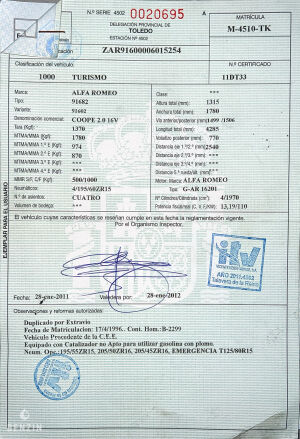 N.º SERIE 4502 0020695 A
DELEGACIÓN PROVINCIAL DE
TOLEDO
ESTACIÓN Nº 4502
MATRÍCULA
M-4510-TK
ZAR91600006015254
Clasificación del vehículo:
N.º CERTIFICADO
1000 TURISMO 11DT33
Marca: ALFA ROMEO
Tipo: 91682
Variante: 91602
Denominación comercial: COOPE 2.0 16V
Tara (Kg): 1370
MTMA/MMA (Kg): 1780
MTMA/MMA 1.º E (Kg): 974
MTMA/MMA 2.º E (Kg): 870
MTMA/MMA 3.º E (Kg): ***
MMR S/F, C/F (Kg): 500/1000
Neumáticos: 4/195/60ZR15
N.º de asientos: CUATRO
Volumen de bodega: ***
Clase: ***
Altura total (mm): 1315
Anchura total (mm): 1780
Vía anterior/posterior (mm): 1499 /1506
Longitud total (mm): 4285
Voladizo posterior (mm): 770
Distancia eje 1.º/2.º (mm): 2540
Motor: Marca: ALFA ROMEO
Tipo: G-AR 16201
Nº Cilindros/Cilindrada (cm³): 4/1970
Potencia fiscal/real (C. V. F./KW): 13,19/110
EJEMPLAR PARA EL USUARIO
El vehículo cuyas características se reseñan cumple en esta fecha la reglamentación vigente.
Por el Organismo Inspector,
Fecha: 28-ene-2011
Valedera por: 28-ene-2012
itv
Talavera de la Reina
Observaciones y reformas autorizadas:
Duplicado por Extravio
Fecha de Matriculacion: 17/4/1996.. Cont. Hom.: B-2299
Vehículo Procedente de la C.E.E.
Equipado con Catalizador no Apto para utilizar gasolina con plomo.
Neum. Opc.: 195/55ZR15, 205/50ZR16, 205/45ZR16, EMERGENCIA T125/80R15
BENZIN